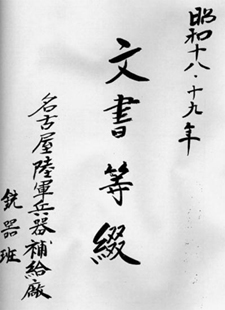 昭和十八・十九年
文書等綴
名古屋陸軍兵器補給廠
銃器班